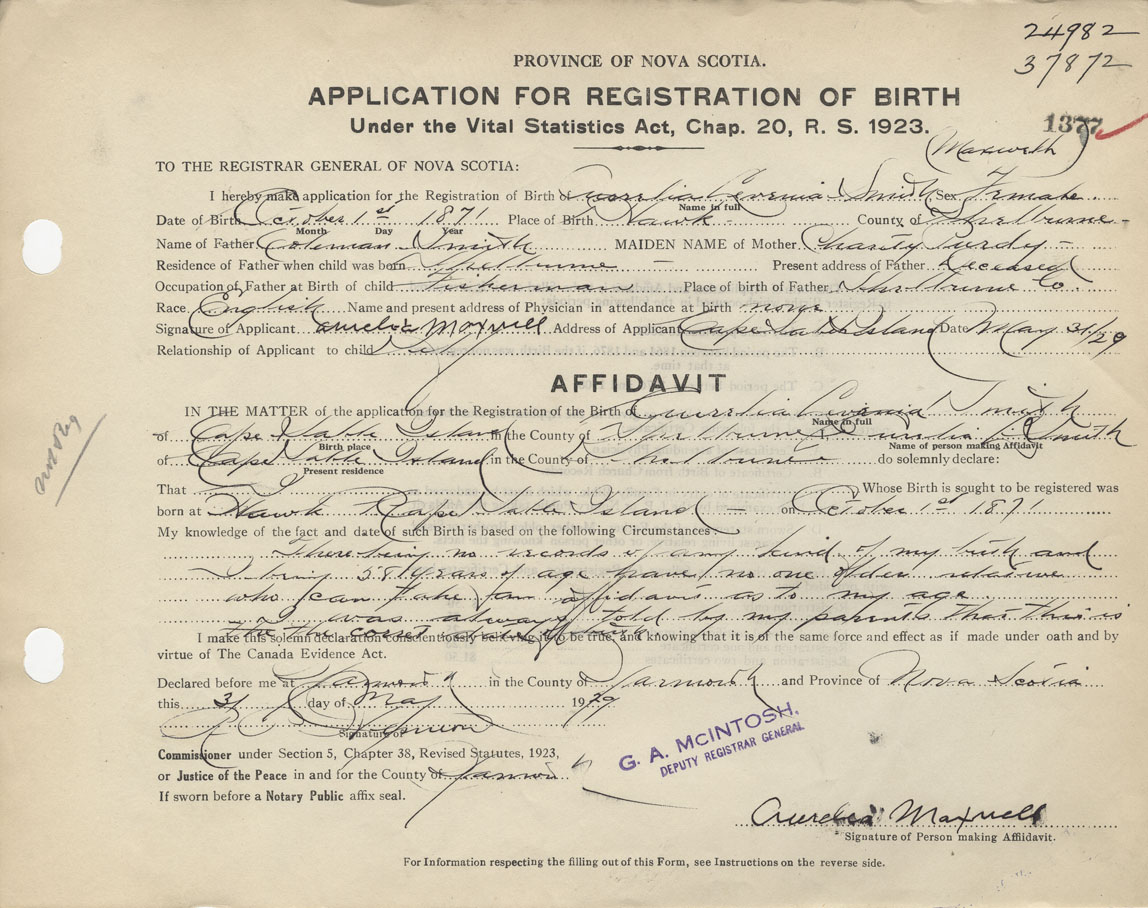 24982
37872
PROVINCE OF NOVA SCOTIA.
APPLICATION FOR REGISTRATION OF BIRTH
Under the Vital Statistics Act, Chap. 20, R. S. 1923.
1377
TO THE REGISTRAR GENERAL OF NOVA SCOTIA:
I hereby make application for the Registration of Birth of Aurelia Smith Sex Female
Name in full
Date of Birth October 1st 1871 Place of Birth Hawk County of Shelburne
Month Day Year
Name of Father Coleman Smith MAIDEN NAME of Mother Charity Purdy
Residence of Father when child was born Shelburne Present address of Father Deceased
Occupation of Father at Birth of child Fisherman Place of birth of Father Shelburne Co
Race English Name and present address of Physician in attendance at birth none
Signature of Applicant Aurelia Maxwell Address of Applicant Cape Sable Island Date May 31/29
Relationship of Applicant to child
AFFIDAVIT
IN THE MATTER of the application for the Registration of the Birth of Aurelia Smith
Name in full
of Cape Sable Island in the County of Shelburne I Aurelia Smith
Birth place Name of person making Affidavit
of Cape Sable Island in the County of Shelburne do solemnly declare:
Present residence
That I Whose Birth is sought to be registered was
born at Hawk Cape Sable Island on October 1st 1871
My knowledge of the fact and date of such Birth is based on the following Circumstances:
There being no records of any kind of my birth and
I being 58 years of age have no one older relative
who can take an affidavit as to my age
I was always told by my parents that this is
I make this solemn declaration conscientiously believing it to be true, and knowing that it is of the same force and effect as if made under oath and by
virtue of The Canada Evidence Act.
Declared before me at Yarmouth in the County of Yarmouth and Province of Nova Scotia
this 31 day of May 1929
Signature of
Commissioner under Section 5, Chapter 38, Revised Statutes, 1923,
or Justice of the Peace in and for the County of Yarmouth
If sworn before a Notary Public affix seal.
G. A. McINTOSH.
DEPUTY REGISTRAR GENERAL
Aurelia Maxwell
Signature of Person making Affidavit.
For Information respecting the filling out of this Form, see Instructions on the reverse side.